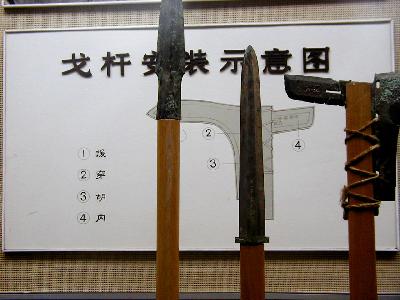 戈杆安装示意图
① 援
② 穿
③ 胡
④ 内
②
③
④